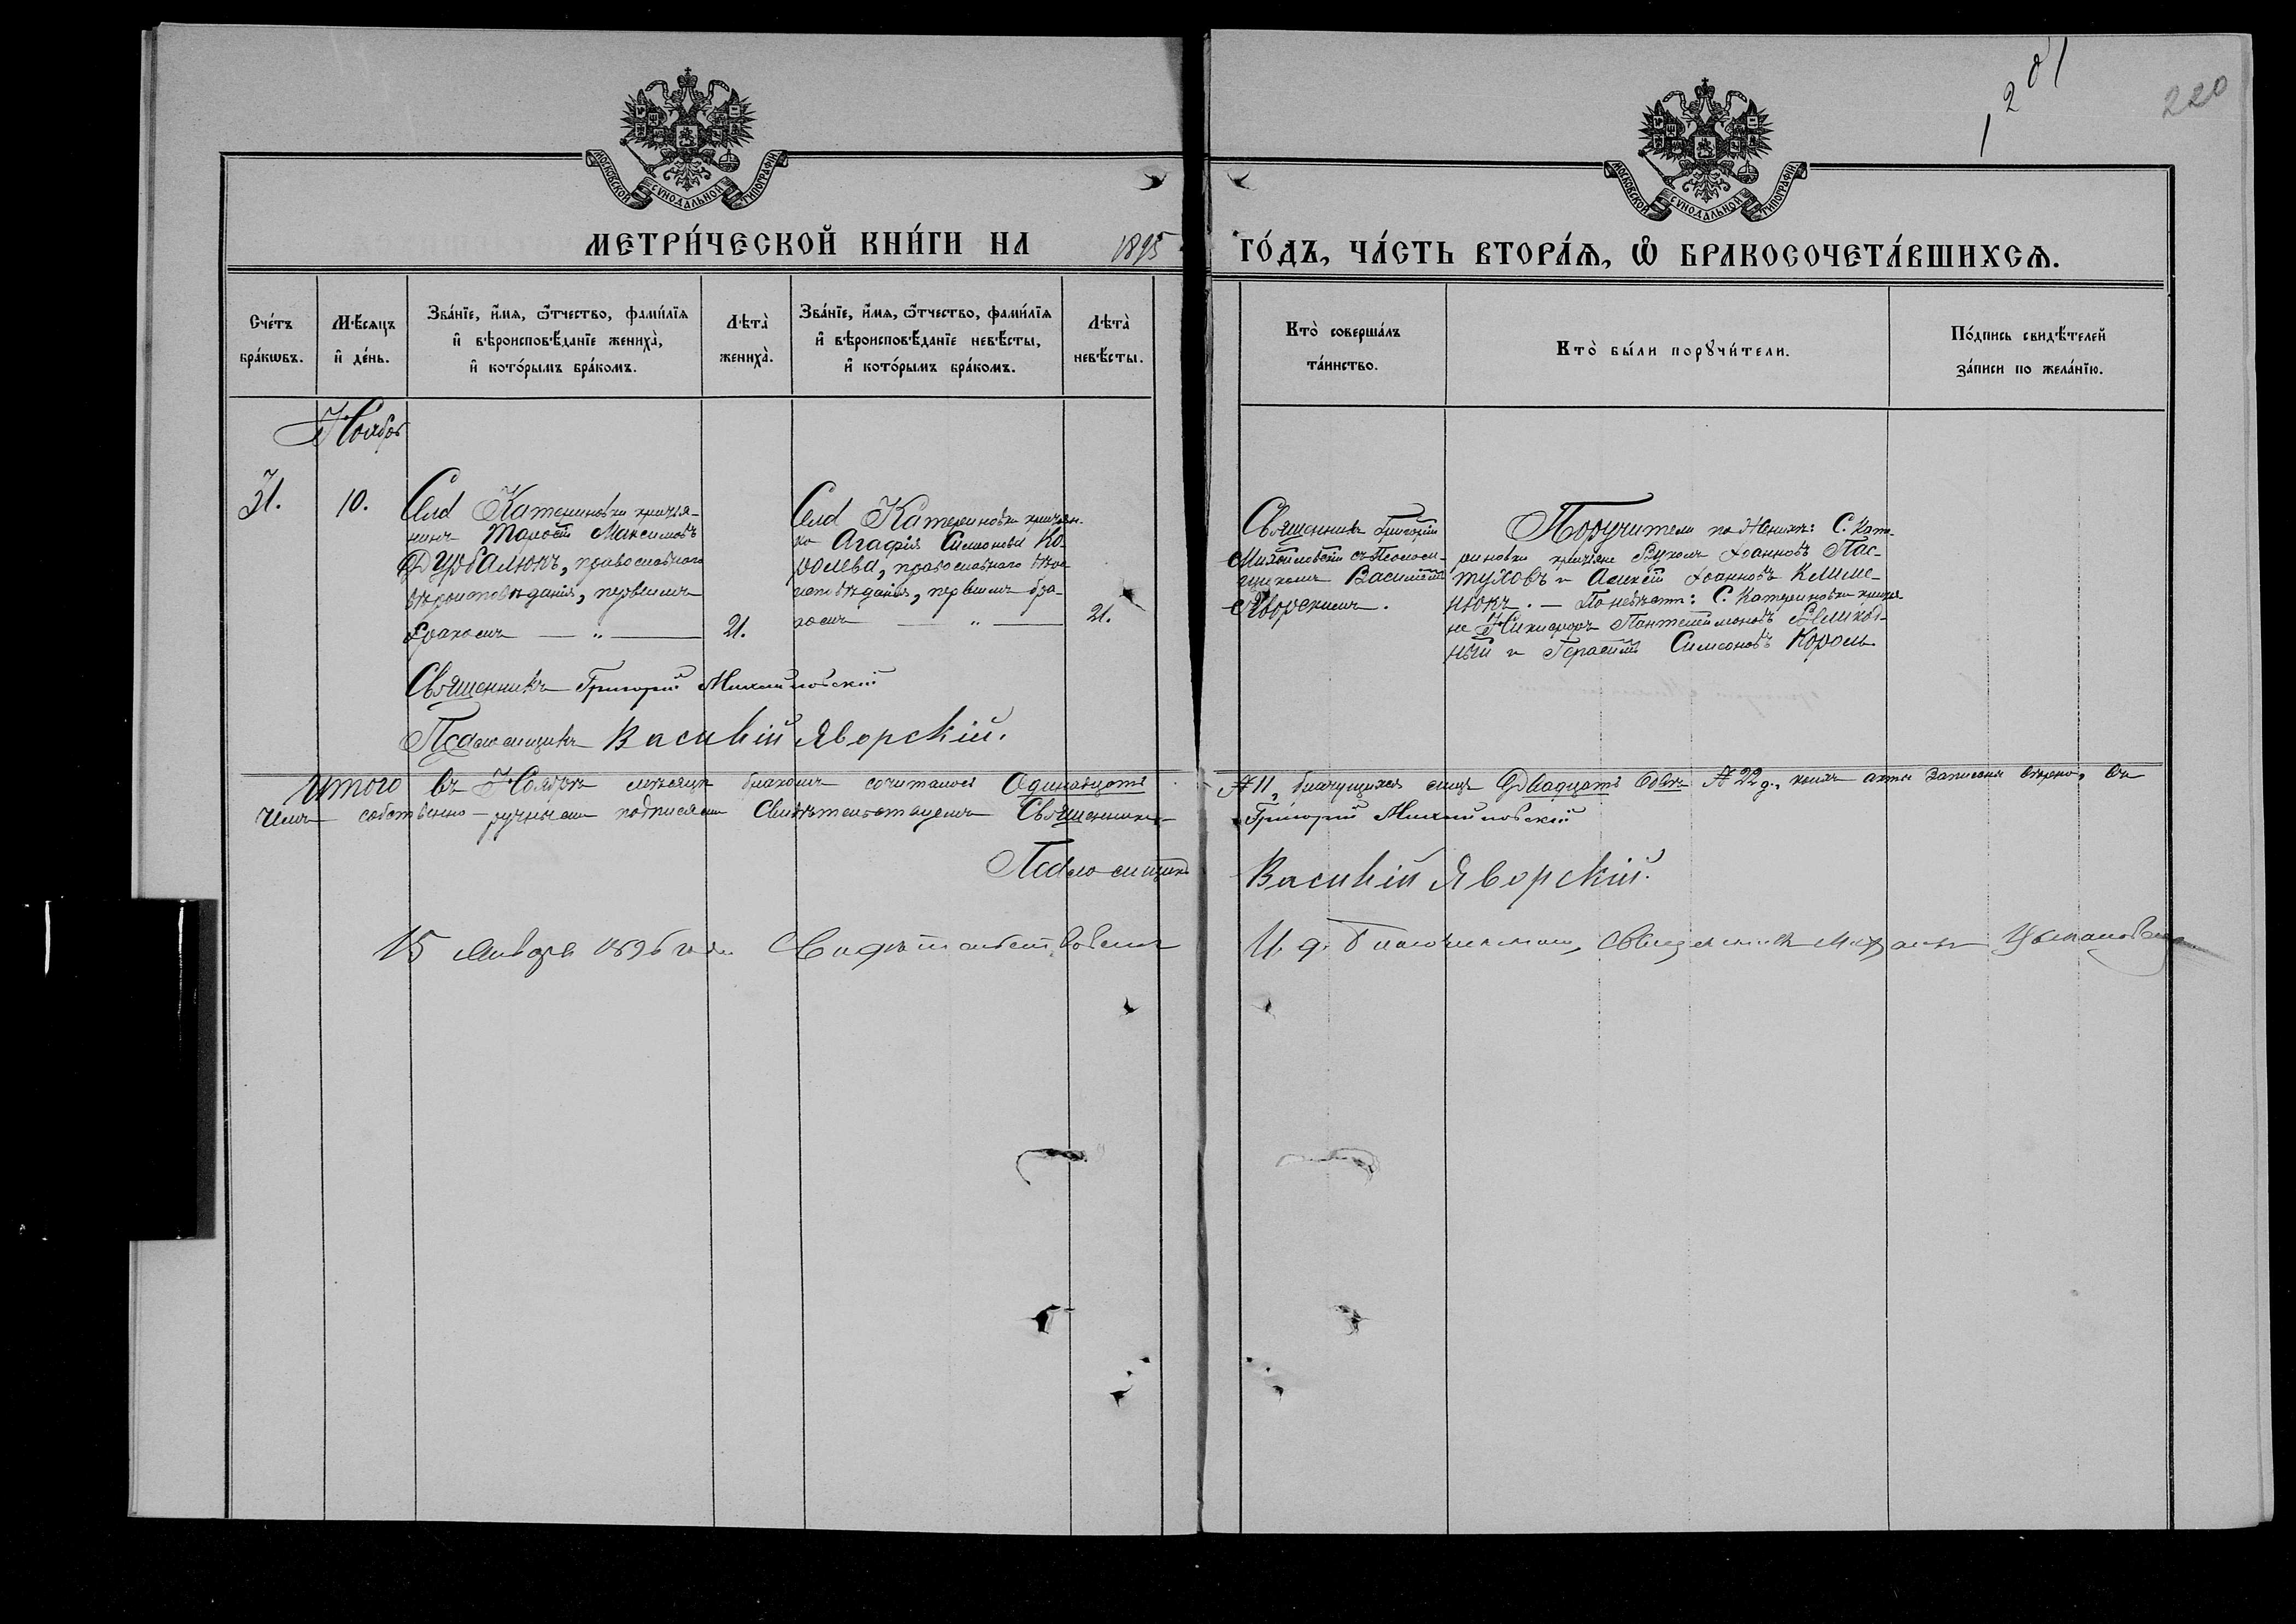 1201
220
МОСКОВСКОЙ СѴНОДАЛЬНОЙ ТИПОГРАФІИ
МОСКОВСКОЙ СѴНОДАЛЬНОЙ ТИПОГРАФІИ
МЕТРИ́ЧЕСКОЙ КНИ́ГИ НА 1895 ГО́ДЪ, ЧА́СТЬ ВТОРА́Ѧ, Ѡ҆ БРАКОСОЧЕТА́ВШИХСѦ.
Сче́тъ бра́кѡвъ.
Мѣ́сяцъ и҆ де́нь.
Зва́нїе, и҆́мѧ, ѻ҆́тчество, фами́лїѧ и҆ вѣроисповѣ́данїе жениха̀, и҆ кото́рымъ бра́комъ.
Лѣта̀ жениха̀.
Зва́нїе, и҆́мѧ, ѻ҆́тчество, фами́лїѧ и҆ вѣроисповѣ́данїе невѣ́сты, и҆ кото́рымъ бра́комъ.
Лѣта̀ невѣ́сты.
Кто̀ соверша́лъ та́инство.
Кто̀ бы́ли порꙋчи́тели.
По́дпись свидѣ́телей за́писи по жела́нїю.
Ноябрь
31.
10.
Села Катериновки крестья-
нинъ
Максимовъ
Дурбалюкъ, православнаго
вѣроисповѣданія, первымъ
бракомъ — „ —
21.
Села Катериновки крестьян-
ка Агафія Симеонова Ко-
ролева, православнаго вѣро-
исповѣданія, первымъ бра-
комъ — „ —
21.
Священникъ Григорій
Михайловскій съ Псаломщи-
щикомъ Василіемъ
Яворскимъ.
Поручители по женихѣ: С. Кате-
риновки крестьяне Вуколъ Іоанновъ Пас-
туховъ и Алексій Іоанновъ Климе-
нюкъ. — По невѣстѣ: С. Катериновки крестья-
не Никифоръ Пантелеимоновъ
и Герасимъ Симеоновъ Король
Священникъ Григорій Михайловскій
Псаломщикъ Василій Яворскій.
Итого въ Ноябрѣ мѣсяцѣ бракомъ сочеталось Одинадцать № 11, брачущихся лицъ Двадцать Двѣ № 22 д., коихъ акты записаны вѣрно, въ
чемъ собственно-ручными подписями Свидѣтельствуемъ Священникъ Григорій Михайловскій
Псаломщикъ Василій Яворскій.
15 января 1896 года Свидѣтельствовалъ И. д. Благочиннаго, Священникъ